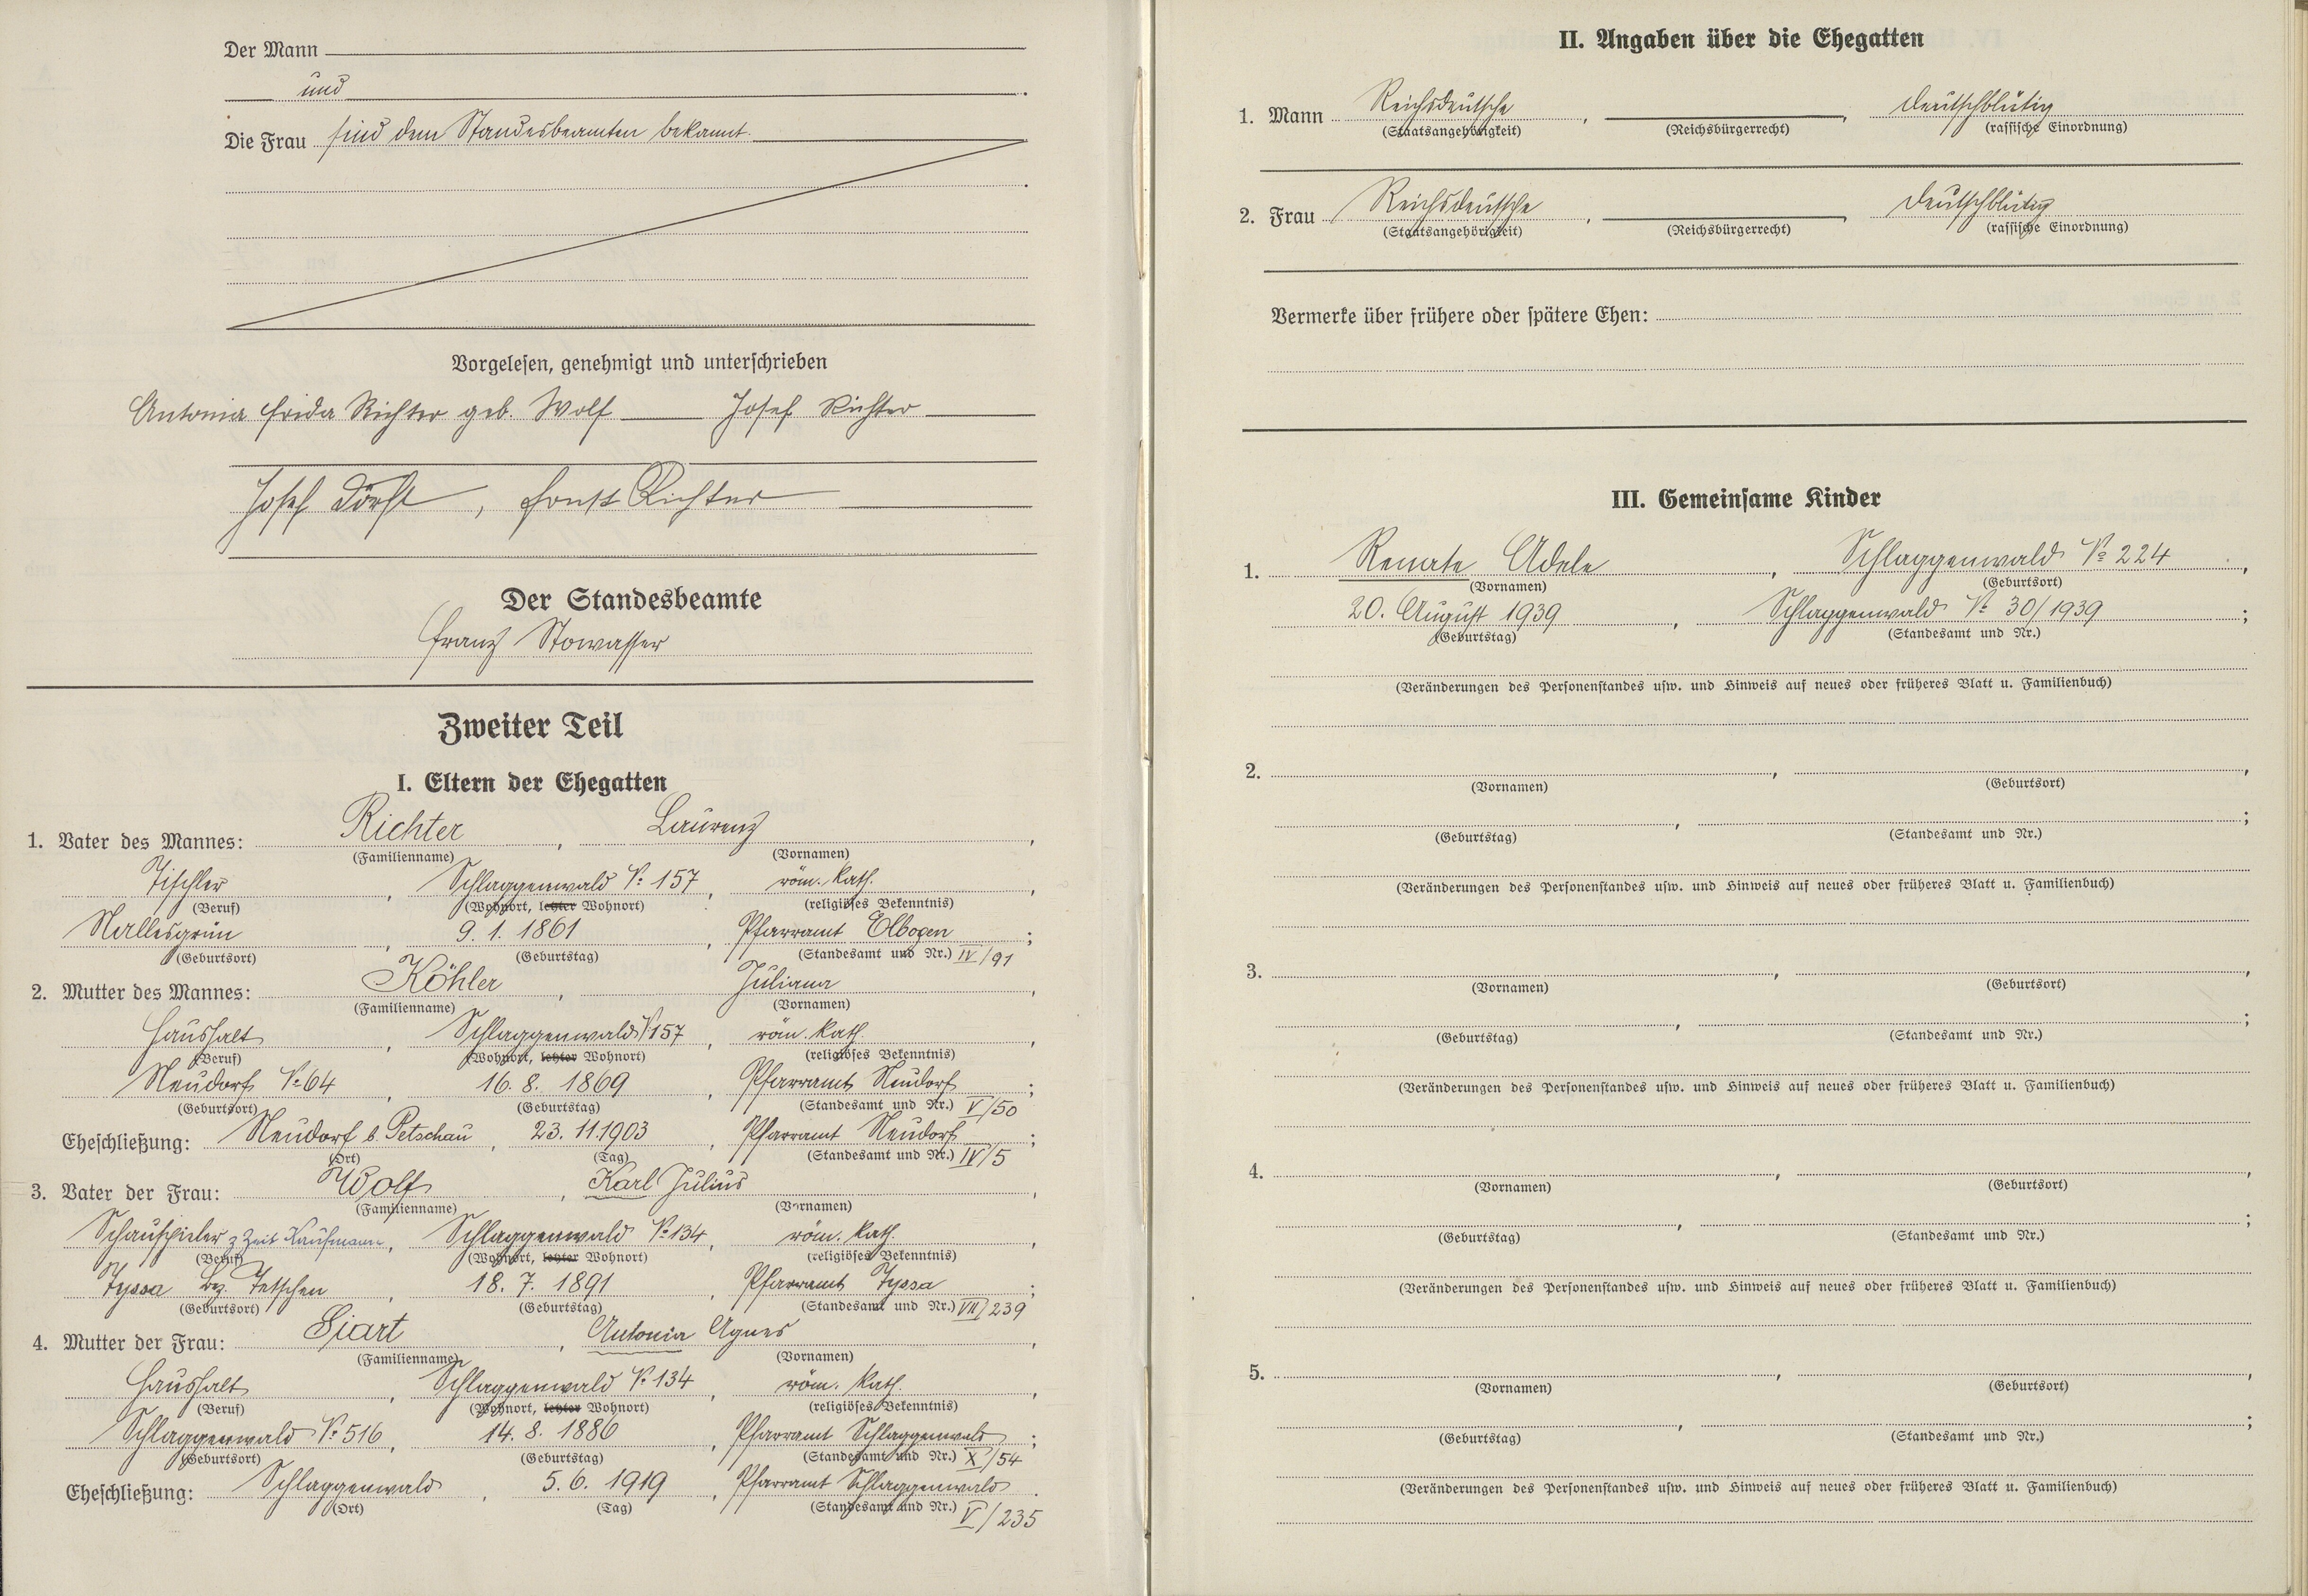 Der Mann
und
Die Frau sind dem Standesbeamten bekannt.
Vorgelesen, genehmigt und unterschrieben
Antonia Frida Richter geb. Wolf Josef Richter
Josef , Ernst Richter
Der Standesbeamte
Franz Stowasser
Zweiter Teil
I. Eltern der Ehegatten
1. Vater des Mannes: Richter , Laurenz ,
(Familienname) (Vornamen)
Tischler , Schlaggenwald № 157 , röm. kath. ,
(Beruf) (Wohnort, letzter Wohnort) (religiöses Bekenntnis)
Nallesgrün , 9. 1. 1861 , Pfarramt Elbogen ;
(Geburtsort) (Geburtstag) (Standesamt und Nr.) IV/91
2. Mutter des Mannes: Köhler , Juliana ,
(Familienname) (Vornamen)
Haushalt , Schlaggenwald № 157 , röm. kath. ,
(Beruf) (Wohnort, letzter Wohnort) (religiöses Bekenntnis)
Neudorf № 64 , 16. 8. 1869 , Pfarramt Neudorf ;
(Geburtsort) (Geburtstag) (Standesamt und Nr.) V/50
Eheschließung: Neudorf b. Petschau , 23. 11. 1903 , Pfarramt Neudorf ;
(Ort) (Tag) (Standesamt und Nr.) IV/5
3. Vater der Frau: Wolf , Karl Julius ,
(Familienname) (Vornamen)
Schauspieler z Zeit Kaufmann , Schlaggenwald № 134 , röm. kath. ,
(Beruf) (Wohnort, letzter Wohnort) (religiöses Bekenntnis)
Tyssa Bez. Tetschen , 18. 7. 1891 , Pfarramt Tyssa ;
(Geburtsort) (Geburtstag) (Standesamt und Nr.) VII/239
4. Mutter der Frau: Siart , Antonia Agnes ,
(Familienname) (Vornamen)
Haushalt , Schlaggenwald № 134 , röm. kath. ,
(Beruf) (Wohnort, letzter Wohnort) (religiöses Bekenntnis)
Schlaggenwald № 516 , 14. 8. 1886 , Pfarramt Schlaggenwald ;
(Geburtsort) (Geburtstag) (Standesamt und Nr.) X/54
Eheschließung: Schlaggenwald , 5. 6. 1919 , Pfarramt Schlaggenwald .
(Ort) (Tag) (Standesamt und Nr.) V/235
II. Angaben über die Ehegatten
1. Mann Reichsdeutsche , , deutschblütig
(Staatsangehörigkeit) (Reichsbürgerrecht) (rassische Einordnung)
2. Frau Reichsdeutsche , , deutschblütig
(Staatsangehörigkeit) (Reichsbürgerrecht) (rassische Einordnung)
Vermerke über frühere oder spätere Ehen:
III. Gemeinsame Kinder
1. Renate Adele , Schlaggenwald № 224 ,
(Vornamen) (Geburtsort)
20. August 1939 , Schlaggenwald № 30/1939 ;
(Geburtstag) (Standesamt und Nr.)
(Veränderungen des Personenstandes usw. und Hinweis auf neues oder früheres Blatt u. Familienbuch)
2. , ,
(Vornamen) (Geburtsort)
, ;
(Geburtstag) (Standesamt und Nr.)
(Veränderungen des Personenstandes usw. und Hinweis auf neues oder früheres Blatt u. Familienbuch)
3. , ,
(Vornamen) (Geburtsort)
, ;
(Geburtstag) (Standesamt und Nr.)
(Veränderungen des Personenstandes usw. und Hinweis auf neues oder früheres Blatt u. Familienbuch)
4. , ,
(Vornamen) (Geburtsort)
, ;
(Geburtstag) (Standesamt und Nr.)
(Veränderungen des Personenstandes usw. und Hinweis auf neues oder früheres Blatt u. Familienbuch)
5. , ,
(Vornamen) (Geburtsort)
, ;
(Geburtstag) (Standesamt und Nr.)
(Veränderungen des Personenstandes usw. und Hinweis auf neues oder früheres Blatt u. Familienbuch)